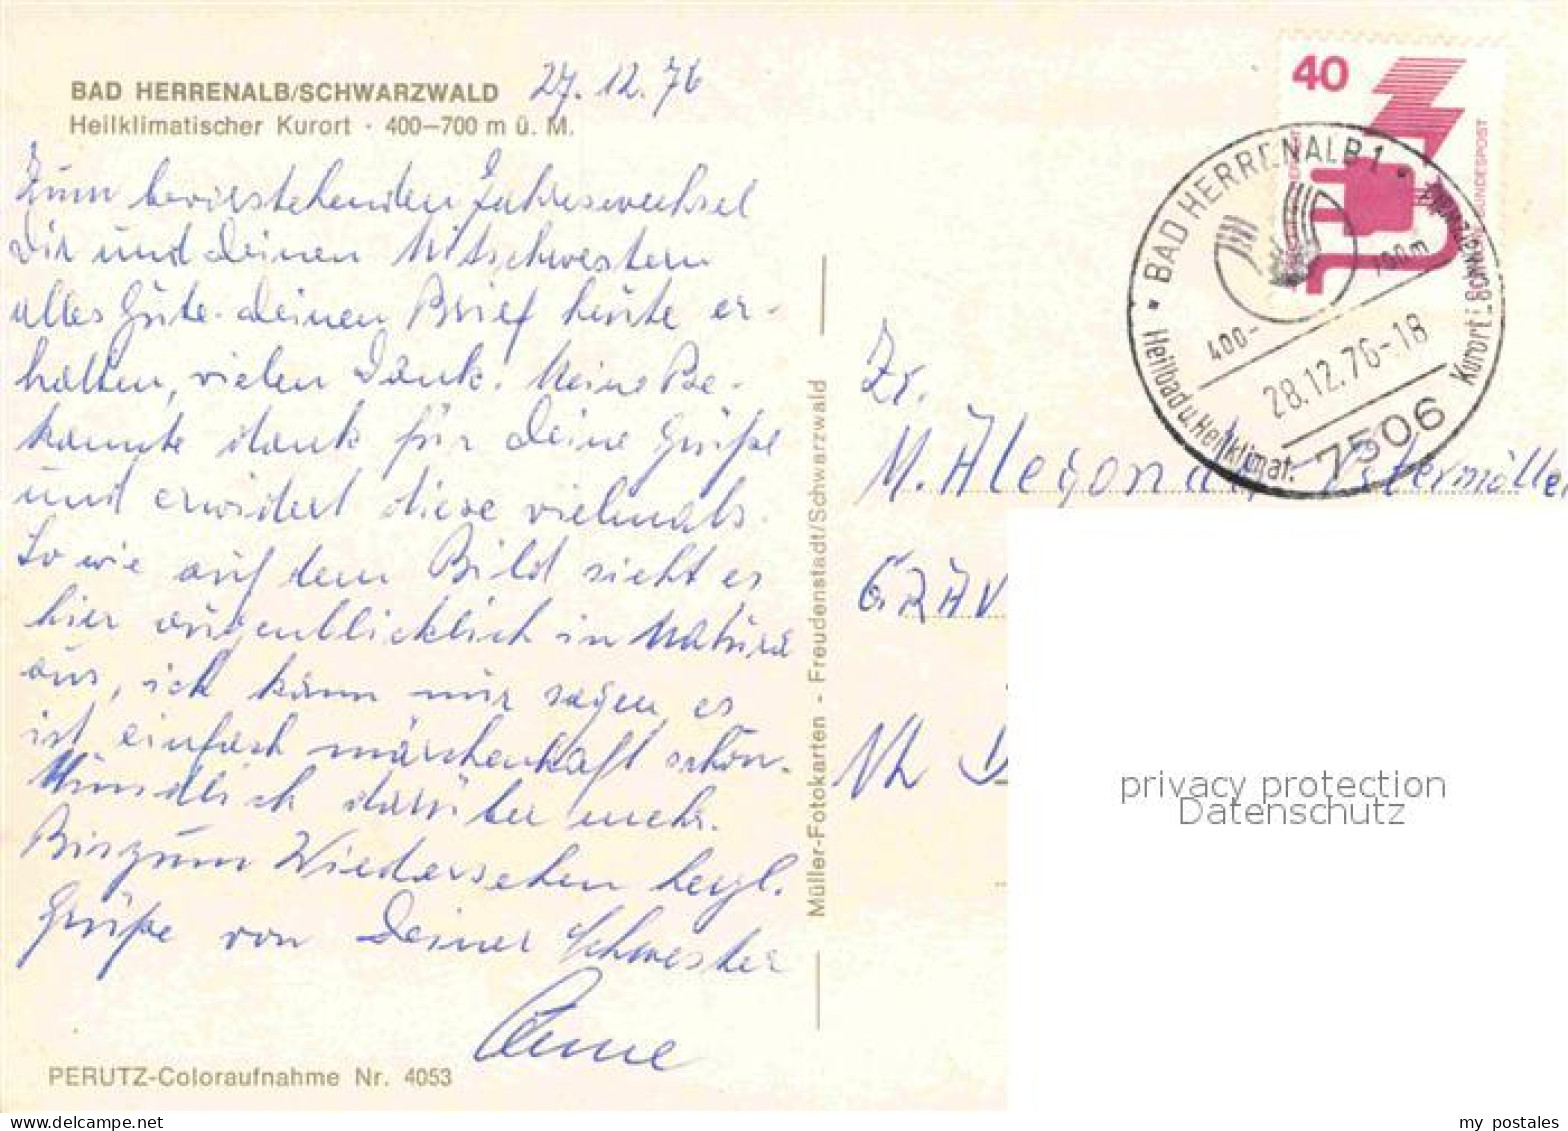 BAD HERRENALB/SCHWARZWALD
Heilklimatischer Kurort · 400–700 m ü. M.
27. 12. 76
Zum bevorstehenden Jahreswechsel
Dir und Deinen Mitschwestern
alles Gute. Deinen Brief heute er-
halten, vielen Dank. Meine Be-
kannte dankt für Deine Grüße
und erwidert diese vielmals.
So wie auf dem Bild sieht es
hier augenblicklich in Natura
aus, ich kann nur sagen, es
ist einfach märchenhaft schön.
Mündlich darüber mehr.
Bis zum Wiedersehen herzl.
Grüße von Deiner Schwester
PERUTZ-Coloraufnahme Nr. 4053
Müller-Fotokarten - Freudenstadt/Schwarzwald
40
BUNDESPOST
BAD HERRENALB 1
400-
700m
28.12.76-18
7506
Heilbad u. Heilklimat.
Kurort
M. Alegonda
GRAV
privacy protection
Datenschutz
my postales